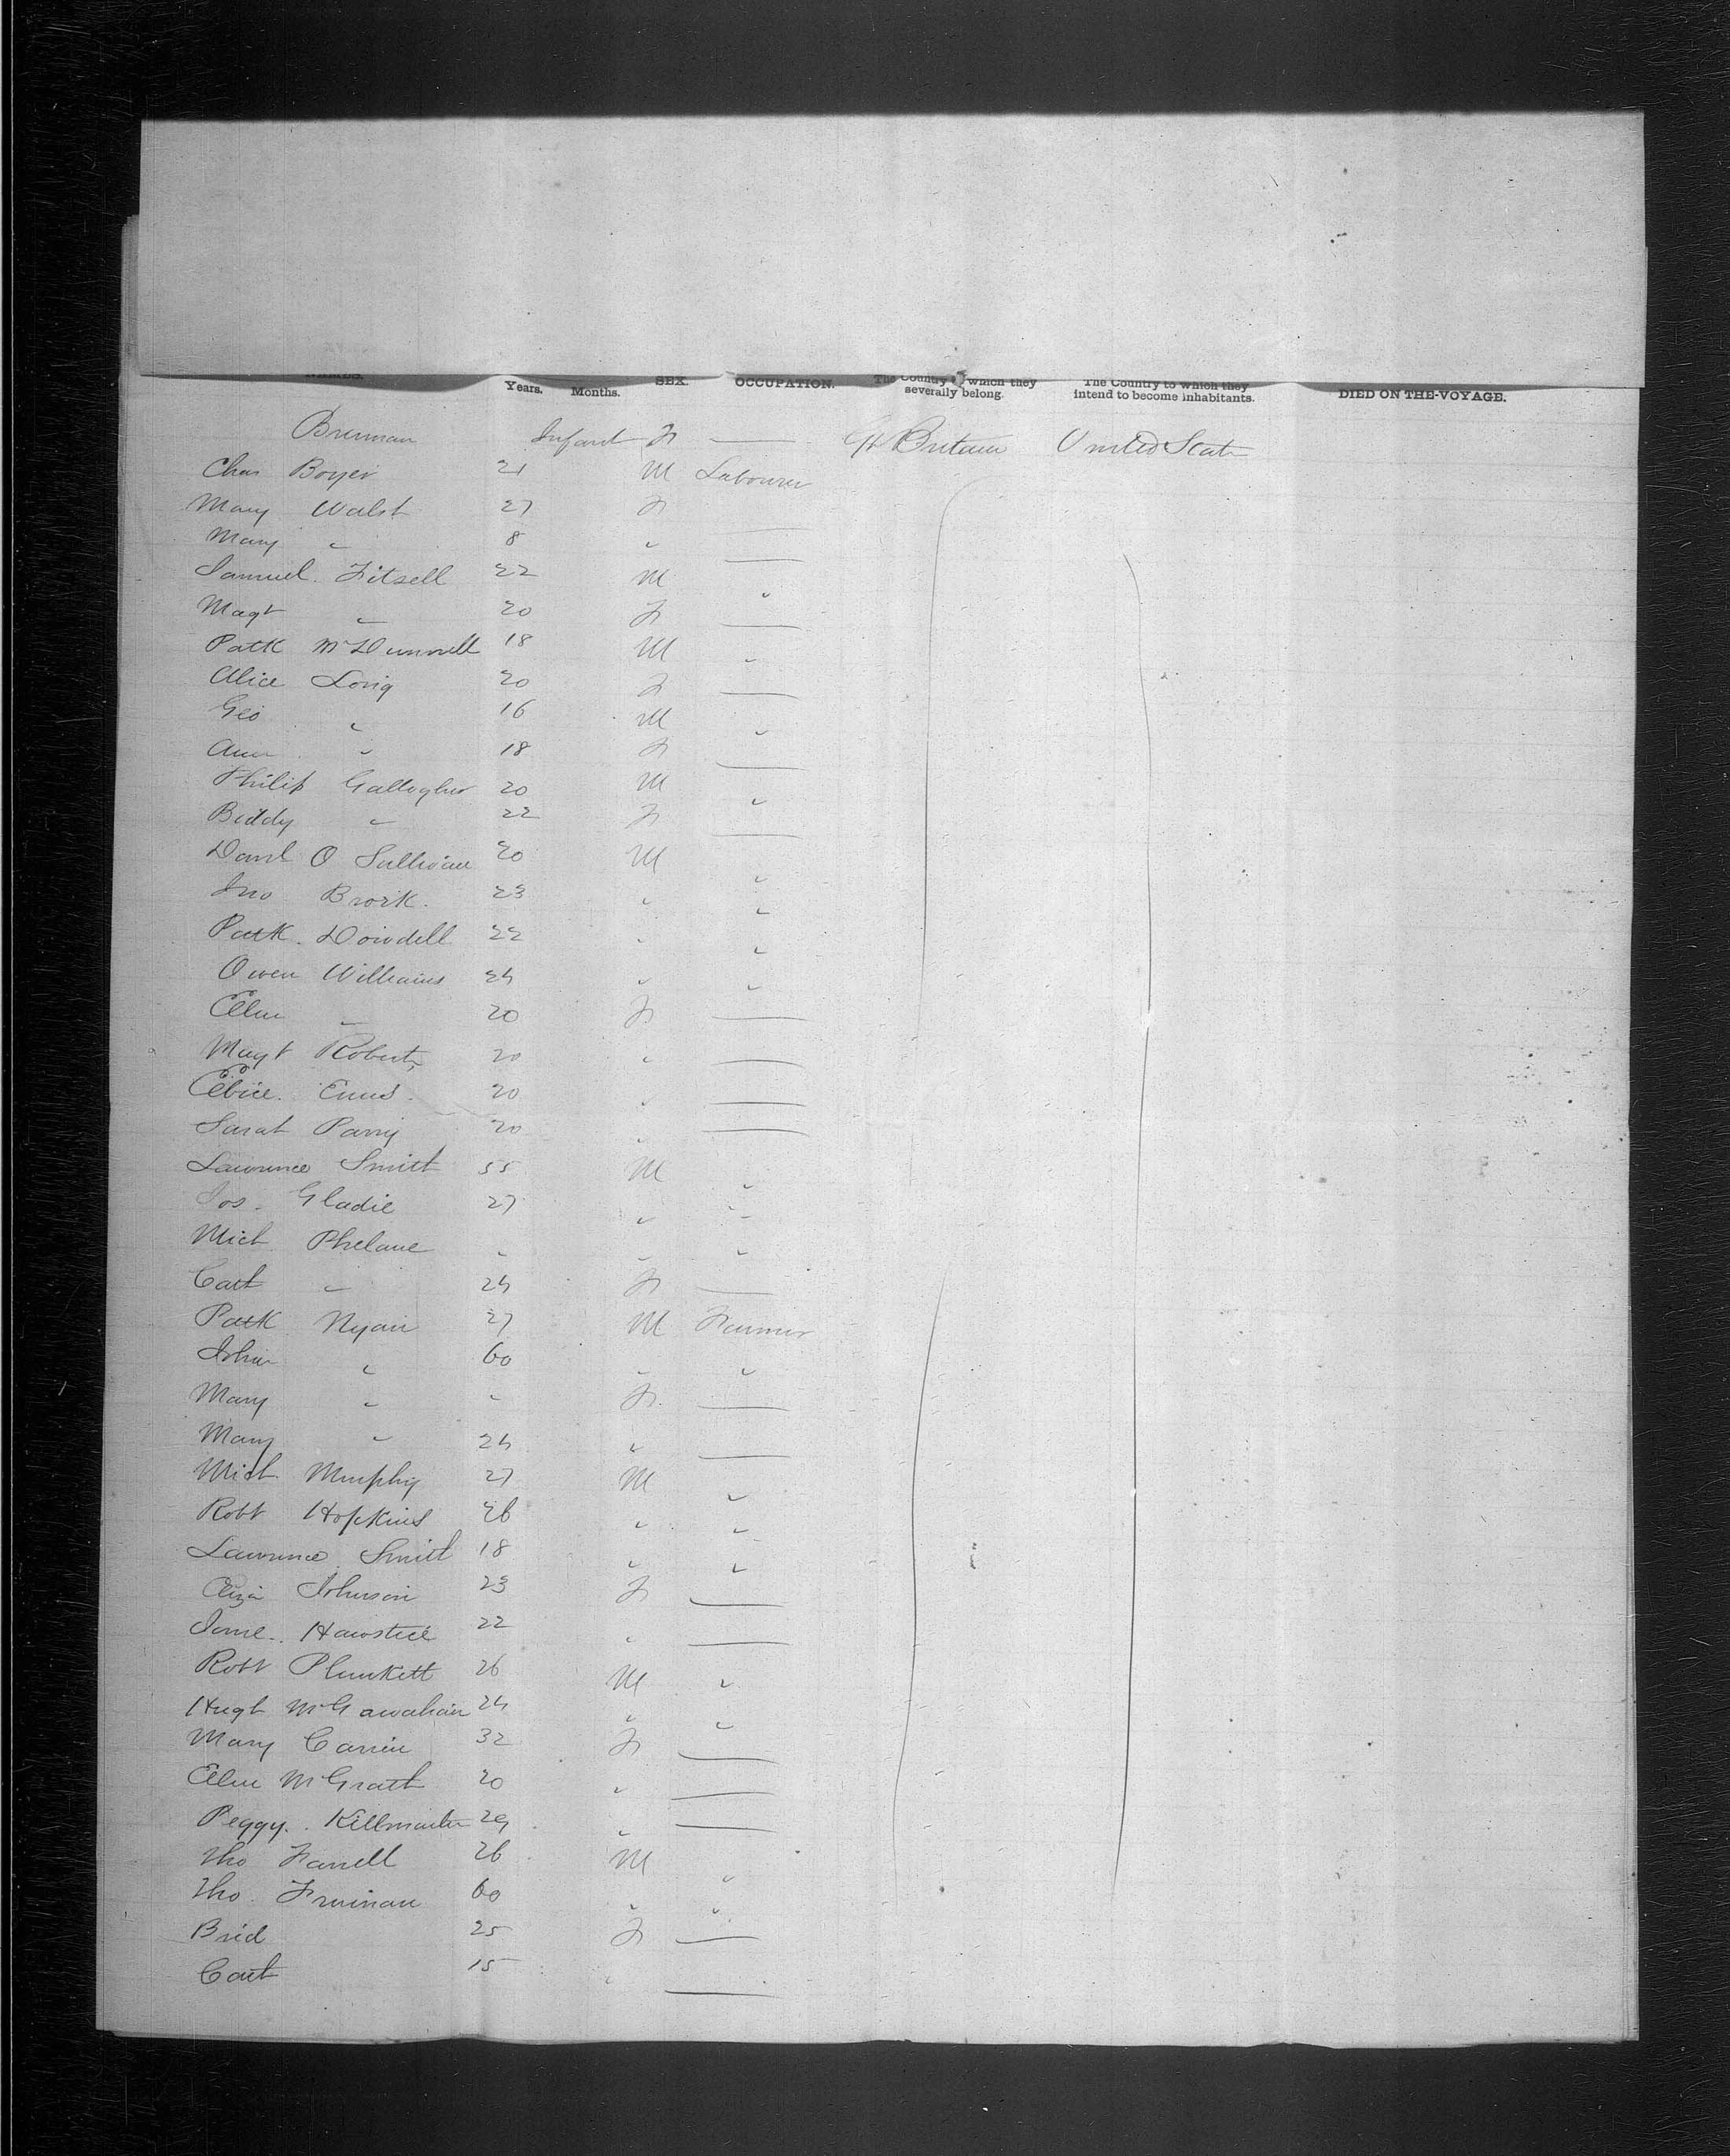 NAMES. Years. Months. SEX. OCCUPATION. The Country to which they severally belong. The Country to which they intend to become inhabitants. DIED ON THE VOYAGE.
Brennan Infant F — Gt Britain United State
Chas Boyer 21 M Labourer
Mary Walsh 27 F —
Mary " 8 " —
Samuel Fitsell 22 M "
Magt " 20 F —
Patk McDunnell 18 M "
Alice Long 20 F —
Geo " 16 M "
Ann " 18 F —
Philip Gallogher 20 M "
Biddy " 22 F —
Danl O Sullivan 20 M "
Jno 23 " "
Patk Dowdell 22 " "
Owen Williams 24 " "
Ellen " 20 F —
Magt Roberts 20 " —
20 " —
Sarah Parry 20 " —
Lawrence Smith 55 M "
Jos. Gladie 27 " "
Mich Phelane " " "
Cath " 24 F —
Patk 27 M Farmer
John " 60 " "
Mary " " F —
Mary " 24 " —
Mich Murphy 27 M "
Robt Hopkins 26 " "
Lawrence Smith 18 " "
Eliza Johnson 23 F —
Jane 22 " —
Robt Plunkett 26 M "
Hugh 24 " "
Mary 32 F —
Ellen McGrath 20 " —
Peggy. 29 " —
Tho Farrell 26 M "
Tho. 60 " "
Brid 25 F —
Cath 15 " —